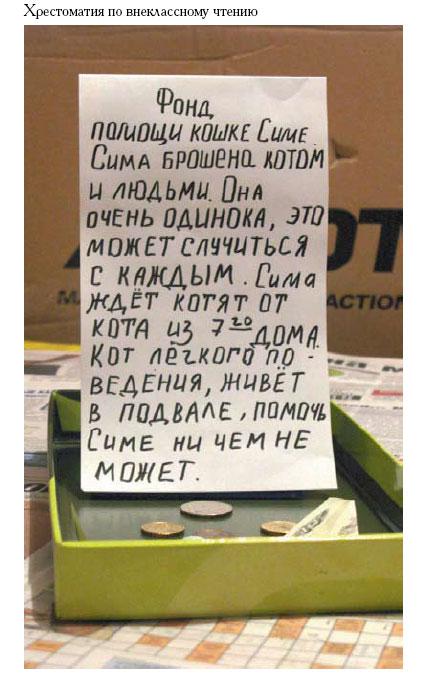 Хрестоматия по внеклассному чтению
Фонд
помощи кошке Симе.
Сима брошена котом
и людьми. Она
очень одинока, это
может случиться
с каждым. Сима
ждёт котят от
кота из 7го дома.
Кот лёгкого по-
ведения, живёт
в подвале, помочь
Симе ни чем не
может.